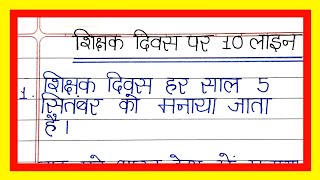 शिक्षक दिवस पर 10 लाइन
1. शिक्षक दिवस हर साल 5
सितंबर को मनाया जाता
है।